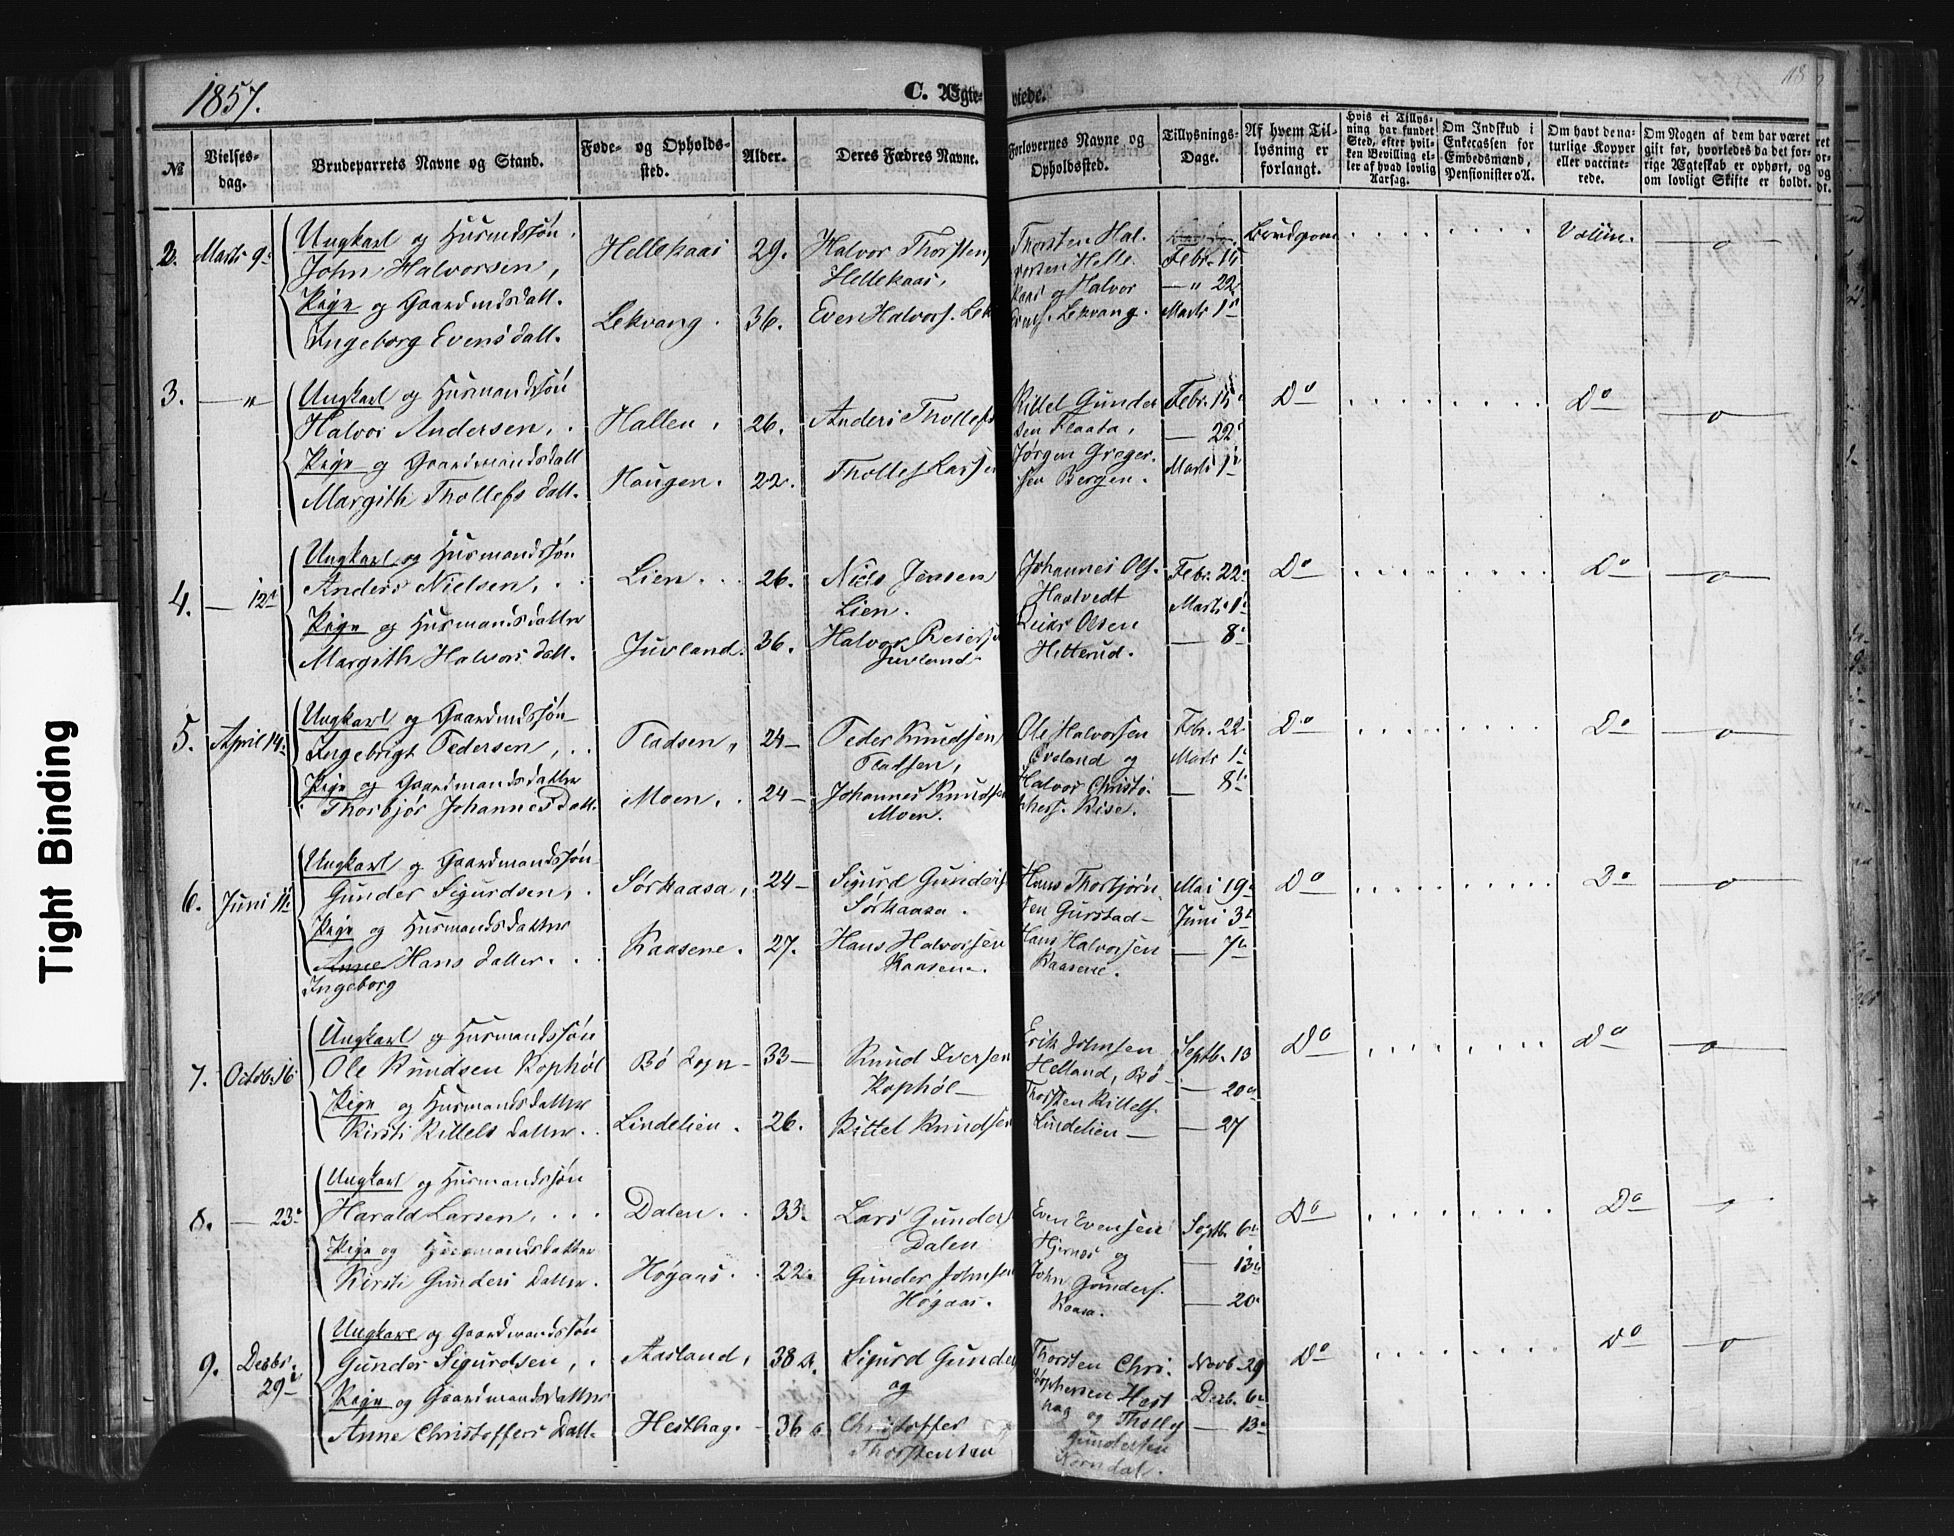 1857.
C. Ægte-
viede.
118
№
Vielses-
dag.
Brudeparrets Navne og Stand.
Føde- og Opholds-
sted.
Alder.
Deres Fædres Navne.
Forlovernes Navne og
Opholdssted.
Tillysnings-
Dage.
Af hvem Til-
lysning er
forlangt.
Hvis ei Tillys-
ning har fundet
Sted, efter hvil-
ken Bevilling el-
ler af hvad lovlig
Aarsag.
Om Indskud i
Enkecassen for
Embedsmænd,
Pensionister o. A.
Om havt de na-
turlige Kopper
eller vaccine-
rede.
Om Nogen af dem har været
gift før, hvorledes da det for-
rige Ægteskab er ophørt, og
om lovligt Skifte er holdt.
2. Marts 9de
Ungkarl og Husmdssøn
John Halvorsen,
Pige og Gaardmdsdatt.
Ingeborg Evensdatt.
Hellekaas
Lekvang.
29.
36.
Halvor Thorstens
Hellekaas,
Even Halvors. Lek
Thorsten Hal.
vorsen Helle
kaas og Halvor
Evens. Lekvang.
Febr. 15
— " 22
Marts 1ste
Brudgom
Vaccin.
— o —
3. — "
Ungkarl og Husmandssøn
Halvor Andersen,
Pige og Gaardmandsdatt
Margith Thollefsdatt.
Hallen,
Haugen.
26.
22.
Anders Thollefs
Thollef Larsen
Kittel Gunder
sen Flaata,
Jørgen Greger.
sen Bergen.
Febr. 15
— 22
Marts 1
Do
Do
— o —
4. — 12te
Ungkarl og Husmandssøn
Anders Nielsen,
Pige og Husmandsdatter
Margith Halvorsdatt.
Lien.
Juvland.
26.
36.
Niels Jensen
Lien.
Halvor Reiers
Juvland
Johannes Ols.
Haatvedt
Reiar Olsen
Hitterud.
Febr. 22
Marts 1
— 8
Do
Do
— o —
5. April 14
Ungkarl og Gaardmdssøn
Ingebrigt Pedersen,
Pige og Gaardmandsdatter
Thorbjør Johannesdatt.
Pladsen,
Moen,
24 —
24 —
Peder Knudsen
Pladsen,
Johannes Knudsen
Moen.
Ole Halvorsen
Øveland og
Halvor Christo.
phers. Riise.
Febr. 22
Marts 1
— 8
Do
Do
— o —
6. Juni 11te
Ungkarl og Gaardmandssøn
Gunder Sigurdsen,
Pige og Husmandsdatter
Anne Hansdatter.
Ingeborg
Sørkaasa,
Kaasene.
24 —
27.
Sigurd Gunders
Sørkaasa.
Hans Halvorsen
Kaasen.
Hans Thorbjørn
sen Gurstad
Hans Halvorsen
Kaasene.
Mai 19
Juni 3
— 7
Do
Do
— o —
7. Octob. 16
Ungkarl og Husmandssøn
Ole Knudsen Kophøl
Pige og Husmandsdatter
Kirsti Kittelsdatter.
Bø Sogn
Lindelien.
33 —
26.
Knud Iversen
Kophøl
Kittel Knudsen
Erik Johnsen
Helland, Bø
Thorsten Kittels.
Lindelien —
Septb. 13
— 20
— 27
Do
Do
— o —
8. — 23
Ungkarl og Husmandssøn
Harald Larsen,
Pige og Husmandsdatter
Kirsti Gundersdatter.
Dalen.
Høgaas.
33.
22.
Lars Gunders
Dalen
Gunder Johnsen
Høgaas.
Even Evensen
Hjernes og
John Gunders.
Kaasa.
Septb. 6
— 13
— 20
Do
Do
— o —
9. Decbr.
29
Ungkarl og Gaardmandssøn
Gunder Sigurdsen,
Pige og Gaardmandsdatter
Anne Christoffersdatt.
Aasland,
Hesthag.
38
36
Sigurd Gunder
og
Christoffer
Thorstensen
Thorsten Chri.
stophersen Hest
hag og Thollef
Gundersen
Novb. 29
Decb. 6
— 13
Do
Do
— o —
Tight Binding